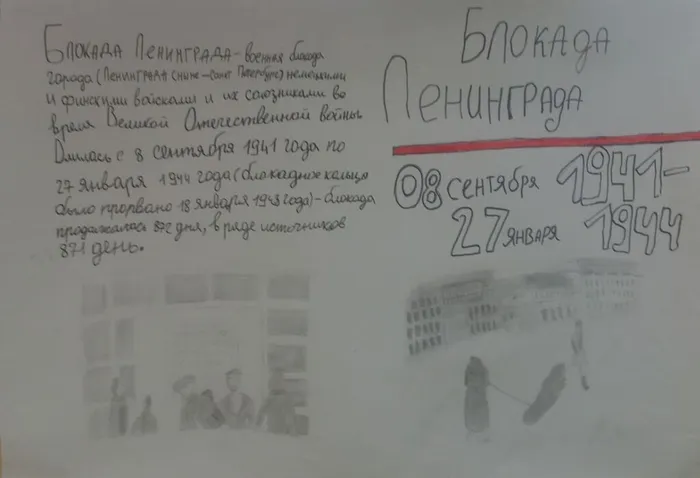 Блокада Ленинграда - военная блокада
города (Ленинграда (ныне - Санкт Петербург) немецкими
и финскими войсками и их союзниками во
время Великой Отечественной войны.
Длилась с 8 сентября 1941 года по
27 января 1944 года (блокадное кольцо
было прорвано 18 января 1943 года) - блокада
продолжалась 872 дня, в ряде источников
871 день.
Блокада
Ленинграда
08 сентября 1941-
27 января 1944